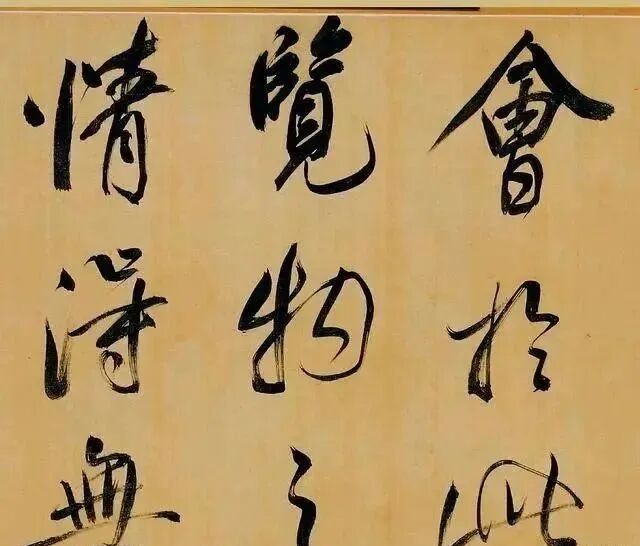 會於此
覽物之
情得無